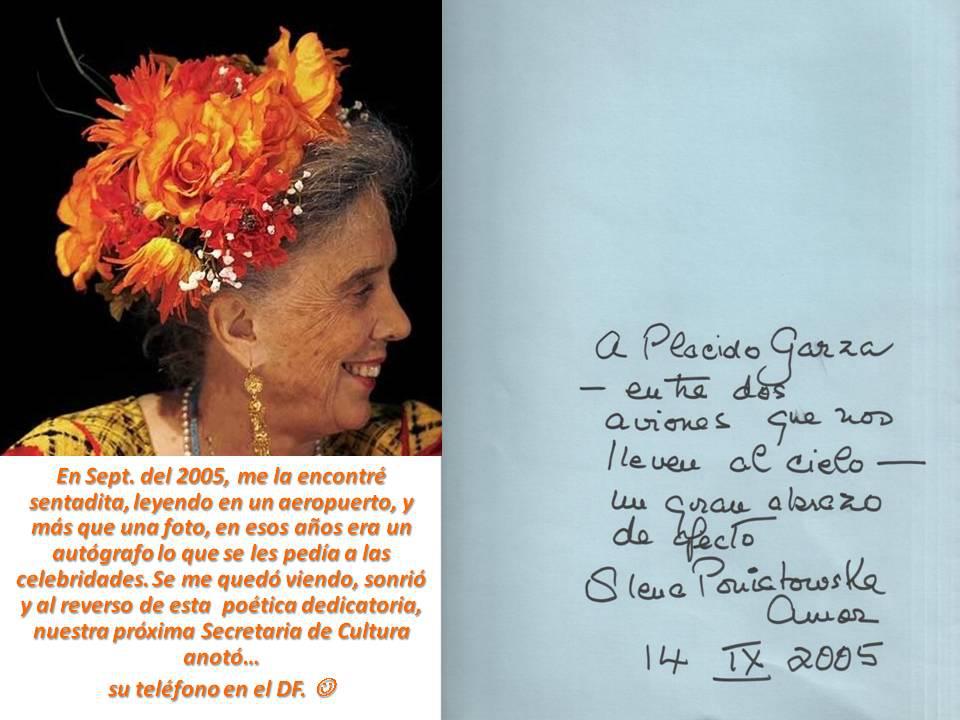 En Sept. del 2005, me la encontré
sentadita, leyendo en un aeropuerto, y
más que una foto, en esos años era un
autógrafo lo que se les pedía a las
celebridades. Se me quedó viendo, sonrió
y al reverso de esta poética dedicatoria,
nuestra próxima Secretaria de Cultura
anotó...
su teléfono en el DF.
A Placido Garza
— entre dos
aviones que nos
lleven al cielo —
un gran abrazo
de afecto
Elena Poniatowska
Amor
14 IX 2005